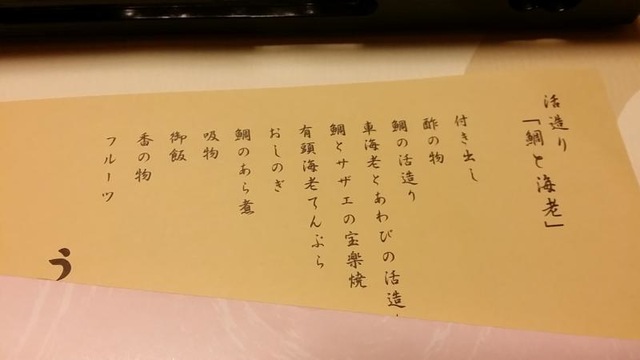 活造り
「鯛と海老」
付き出し
酢の物
鯛の活造り
車海老とあわびの活造
鯛とサザエの宝楽焼
有頭海老てんぷら
おしのぎ
鯛のあら煮
吸物
御飯
香の物
フルーツ
う